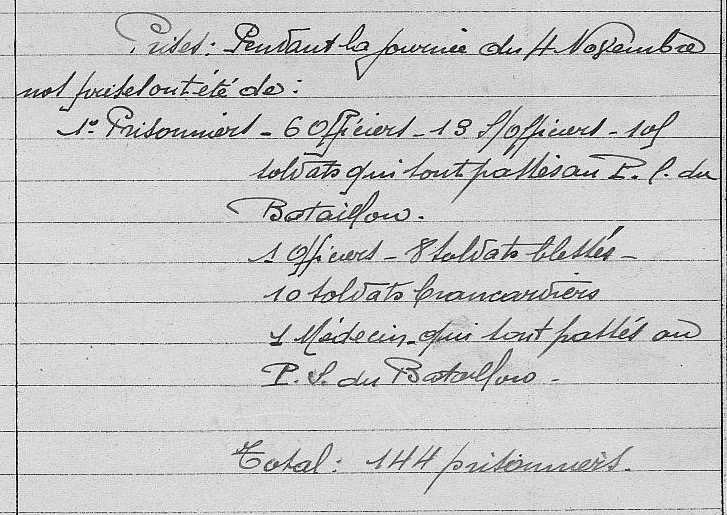 Prises : Pendant la journée du 4 Novembre
nos prises ont été de :
1º Prisonniers - 6 Officiers - 13 S/officiers - 105
soldats qui sont passés au P. C. du
Bataillon.
1 Officiers - 8 soldats blessés -
10 soldats brancardiers
1 Médecin - qui sont passés au
P. S. du Bataillon -
Total : 144 prisonniers.